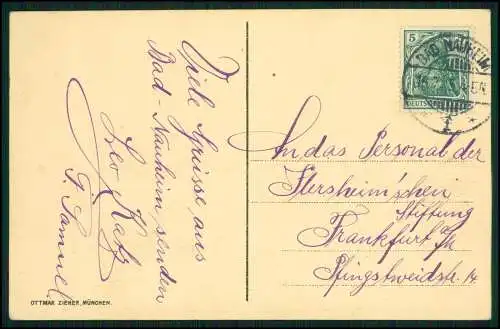 Viele Grüsse aus
Bad-Nauheim senden
Leo Katz
F. Samuel.
OTTMAR ZIEHER, MÜNCHEN.
5
BAD NAUHEIM
DEUTSCHES
1
An das Personal der
Flersheim'schen
Stiftung
Frankfurt a/M
Pfingstweidstr. 14